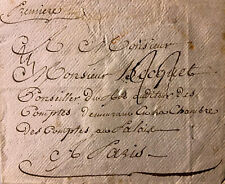 Premiere
A Monsieur
Monsieur Hocquet
Conseiller du Roy auditeur des
Comptes demeurant En sa Chambre
Des Comptes au Palais
A Paris